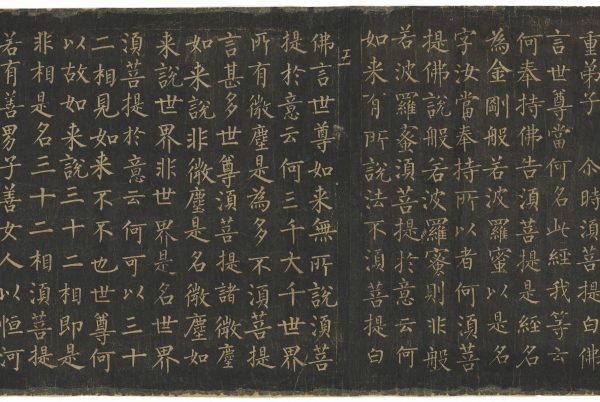 重弟子 尒時須菩提白佛
言世尊當何名此經我等云
何奉持佛告須菩提是經名
為金剛般若波羅蜜以是名
字汝當奉持所以者何須菩
提佛說般若波羅蜜則非般
若波羅蜜須菩提於意云何
如来有所說法不須菩提白
五
佛言世尊如来無所說須菩
提於意云何三千大千世界
所有微塵是為多不須菩提
言甚多世尊須菩提諸微塵
如来說非微塵是名微塵如
来說世界非世界是名世界
須菩提於意云何可以三十
二相見如来不不也世尊何
以故如来說三十二相即是
非相是名三十二相須菩提
若有善男子善女人以恒河